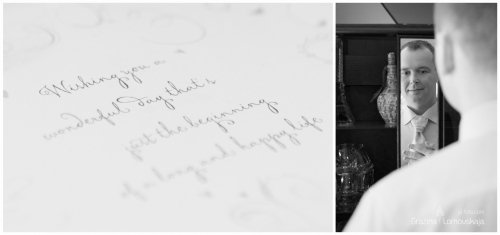 Wishing you a
wonderful Day that's
just the beginning
of a long and happy life
Lomovskaja